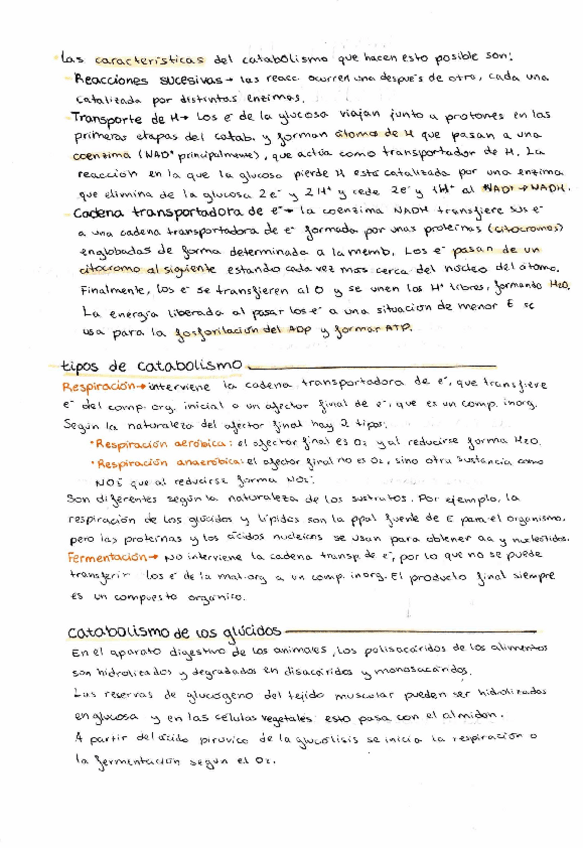 Las características del catabolismo que hacen esto posible son:
Reacciones sucesivas → las reacc. ocurren una después de otra, cada una
catalizada por distintas enzimas.
Transporte de H → Los e⁻ de la glucosa viajan junto a protones en las
primeras etapas del catab. y forman átomos de H que pasan a una
coenzima (NAD⁺ principalmente), que actúa como transportador de H. La
reacción en la que la glucosa pierde H está catalizada por una enzima
que elimina de la glucosa 2e⁻ y 2H⁺ y cede 2e⁻ y 1H⁺ al NAD⁺ → NADH.
Cadena transportadora de e⁻ → la coenzima NADH transfiere sus e⁻
a una cadena transportadora de e⁻ formada por unas proteínas (citocromos)
englobadas de forma determinada a la memb. Los e⁻ pasan de un
citocromo al siguiente estando cada vez más cerca del núcleo del átomo.
Finalmente, los e⁻ se transfieren al O y se unen los H⁺ libres, formando H₂O.
La energía liberada al pasar los e⁻ a una situación de menor E se
usa para la fosforilación del ADP y formar ATP.
tipos de catabolismo
Respiración → interviene la cadena transportadora de e⁻, que transfiere
e⁻ del comp. org. inicial a un afector final de e⁻, que es un comp. inorg.
Según la naturaleza del afector final hay 2 tipos:
• Respiración aeróbica: el afector final es O₂ y al reducirse forma H₂O.
• Respiración anaeróbica: el afector final no es O₂, sino otra sustancia como
NO₃⁻ que al reducirse forma NO₂⁻.
Son diferentes según la naturaleza de los sustratos. Por ejemplo, la
respiración de los glúcidos y lípidos son la ppal fuente de E para el organismo,
pero las proteínas y los ácidos nucleicos se usan para obtener aa y nucleótidos.
Fermentación → No interviene la cadena transp. de e⁻, por lo que no se puede
transferir los e⁻ de la mat.org a un comp. inorg. El producto final siempre
es un compuesto orgánico.
catabolismo de los glúcidos
En el aparato digestivo de los animales, los polisacáridos de los alimentos
son hidrolizados y degradados en disacáridos y monosacáridos.
Las reservas de glucógeno del tejido muscular pueden ser hidrolizadas
en glucosa y en las células vegetales esto pasa con el almidón.
A partir del ácido pirúvico de la glucólisis se inicia la respiración o
la fermentación según el O₂.